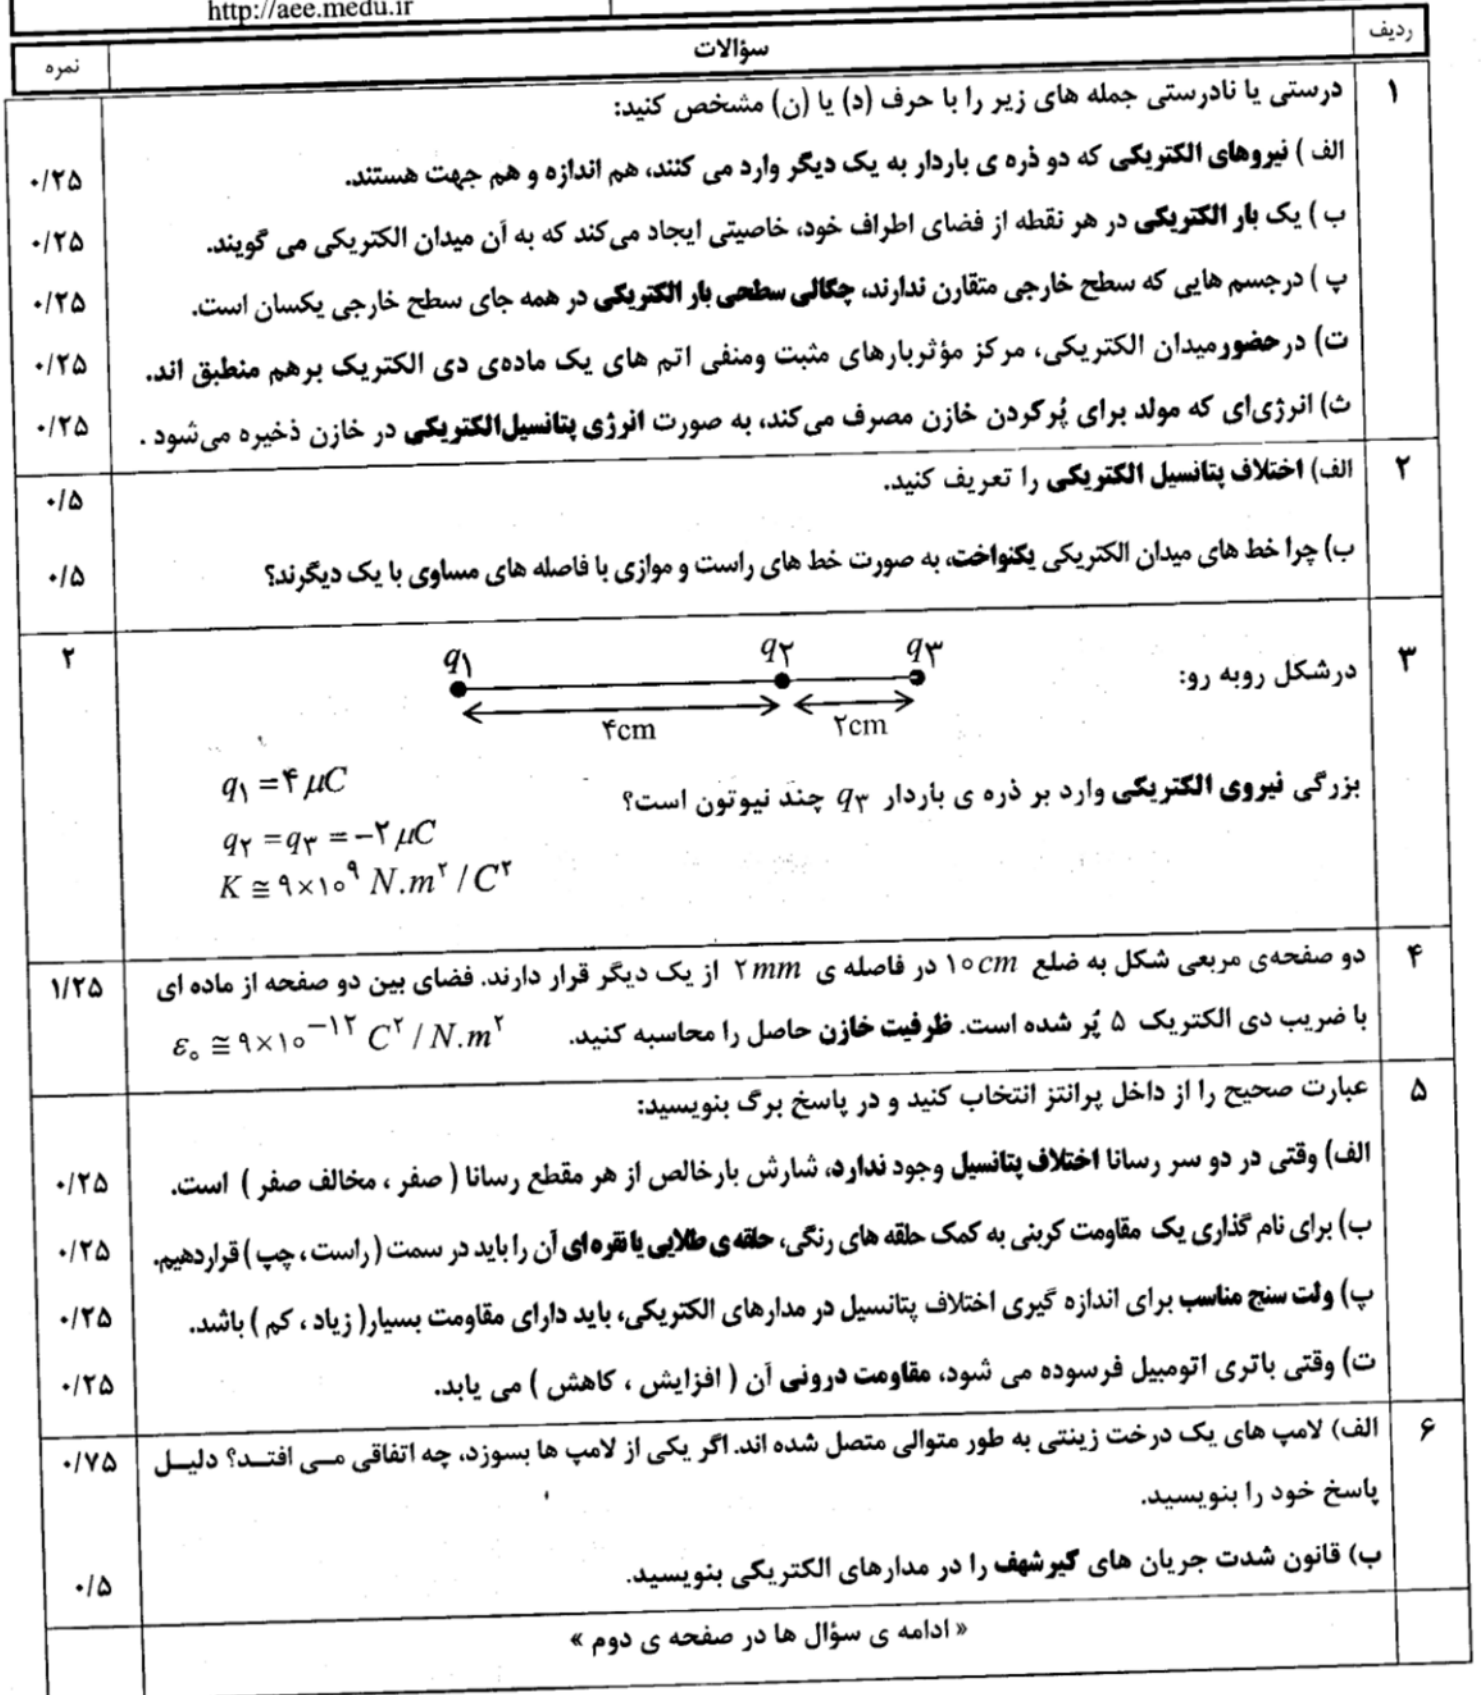 http://aee.medu.ir
ردیف سؤالات نمره
۱ درستی یا نادرستی جمله های زیر را با حرف (د) یا (ن) مشخص کنید:
الف ) نیروهای الکتریکی که دو ذره ی باردار به یک دیگر وارد می کنند، هم اندازه و هم جهت هستند. ۰/۲۵
ب ) یک بار الکتریکی در هر نقطه از فضای اطراف خود، خاصیتی ایجاد می‌کند که به آن میدان الکتریکی می گویند. ۰/۲۵
پ ) درجسم هایی که سطح خارجی متقارن ندارند، چگالی سطحی بار الکتریکی در همه جای سطح خارجی یکسان است. ۰/۲۵
ت) درحضورمیدان الکتریکی، مرکز مؤثربارهای مثبت ومنفی اتم های یک ماده‌ی دی الکتریک برهم منطبق اند. ۰/۲۵
ث) انرژی‌ای که مولد برای پُرکردن خازن مصرف می‌کند، به صورت انرژی پتانسیل‌الکتریکی در خازن ذخیره می‌شود . ۰/۲۵
۲ الف) اختلاف پتانسیل الکتریکی را تعریف کنید. ۰/۵
ب) چرا خط های میدان الکتریکی یکنواخت، به صورت خط های راست و موازی با فاصله های مساوی با یک دیگرند؟ ۰/۵
q۱ q۲ q۳
۳ درشکل روبه رو: ۲
۴cm ۲cm
q۱ =۴ μC
بزرگی نیروی الکتریکی وارد بر ذره ی باردار q۳ چند نیوتون است؟
q۲ =q۳ =−۲ μC
K ≅ ۹×۱۰^۹ N.m^۲ / C^۲
۴ دو صفحه‌ی مربعی شکل به ضلع ۱۰cm در فاصله ی ۲mm از یک دیگر قرار دارند. فضای بین دو صفحه از ماده ای ۱/۲۵
با ضریب دی الکتریک ۵ پُر شده است. ظرفیت خازن حاصل را محاسبه کنید. ε₀ ≅ ۹×۱۰^−۱۲ C^۲ / N.m^۲
۵ عبارت صحیح را از داخل پرانتز انتخاب کنید و در پاسخ برگ بنویسید:
الف) وقتی در دو سر رسانا اختلاف پتانسیل وجود ندارد، شارش بارخالص از هر مقطع رسانا ( صفر ، مخالف صفر ) است. ۰/۲۵
ب) برای نام گذاری یک مقاومت کربنی به کمک حلقه های رنگی، حلقه ی طلایی یا نقره ای آن را باید در سمت ( راست ، چپ ) قراردهیم. ۰/۲۵
پ) ولت سنج مناسب برای اندازه گیری اختلاف پتانسیل در مدارهای الکتریکی، باید دارای مقاومت بسیار( زیاد ، کم ) باشد. ۰/۲۵
ت) وقتی باتری اتومبیل فرسوده می شود، مقاومت درونی آن ( افزایش ، کاهش ) می یابد. ۰/۲۵
۶ الف) لامپ های یک درخت زینتی به طور متوالی متصل شده اند. اگر یکی از لامپ ها بسوزد، چه اتفاقی مـی افتـد؟ دلیـل ۰/۷۵
پاسخ خود را بنویسید.
ب) قانون شدت جریان های کیرشهف را در مدارهای الکتریکی بنویسید. ۰/۵
« ادامه ی سؤال ها در صفحه ی دوم »